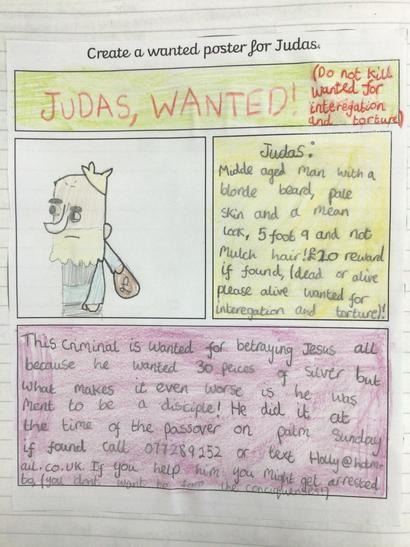 Create a wanted poster for Judas.
JUDAS, WANTED!
(Do not kill
wanted for
interegation
and torture)
Judas:
Midde aged man with a
blonde beard, pale
skin and a mean
look, 5 foot 9 and not
Mulch hair! £20 reward
if found, (dead or alive
please alive wanted for
interegation and torture)!
This Criminal is wanted for betraying Jesus all
because he wanted 30 peices of silver but
what makes it even worse is he was
ment to be a disciple! He did it at
the time of the passover on palm Sunday
if found call 077289252 or text Holly@hotm
ail.co.uk. If you help him you might get arrested
to, (you dont want to the